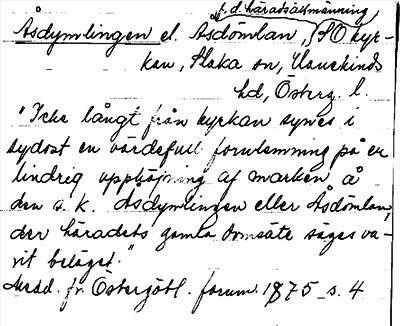 f. d. häradsallmänning,
Åsdymlingen el. Åsdömlan, SO kyr-
kan, Slaka sn, Hanekinds
hd, Österg. l.
"Icke långt från kyrkan synes i
sydost en värdefull fornlemning på en
lindrig upphöjning af marken, å
den s. k. Åsdymlingen eller Åsdömlan,
der häradets gamla domsäte säges va-
rit beläget."
Medd. fr. Östergötl. fornm. 1875 s. 4